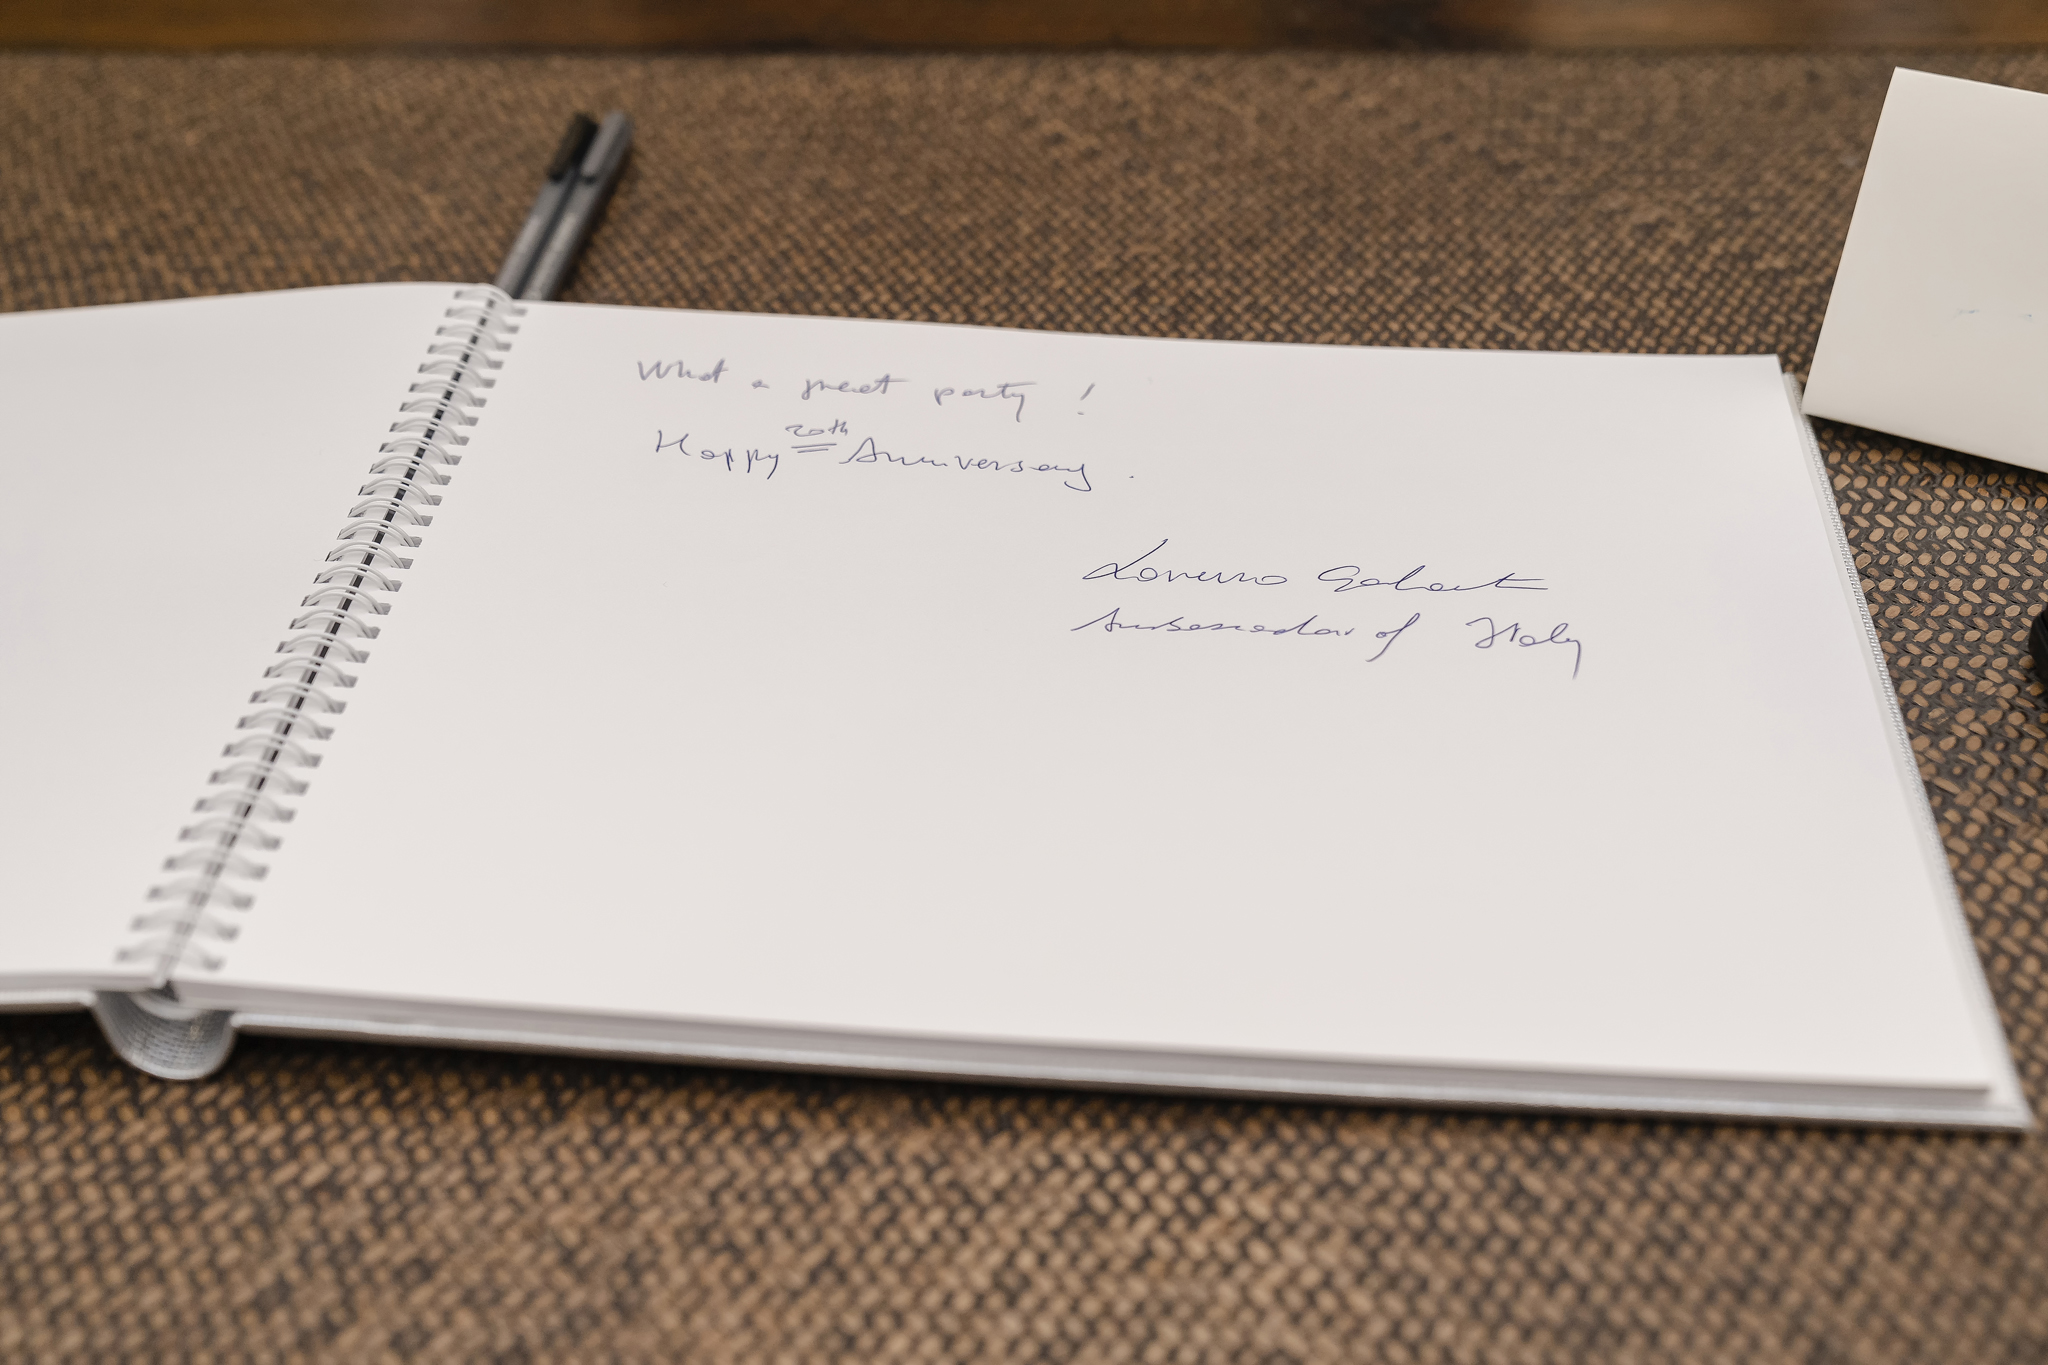 What a great party !
Happy 20th Anniversary .
Lorenzo Galanti
Ambassador of Italy